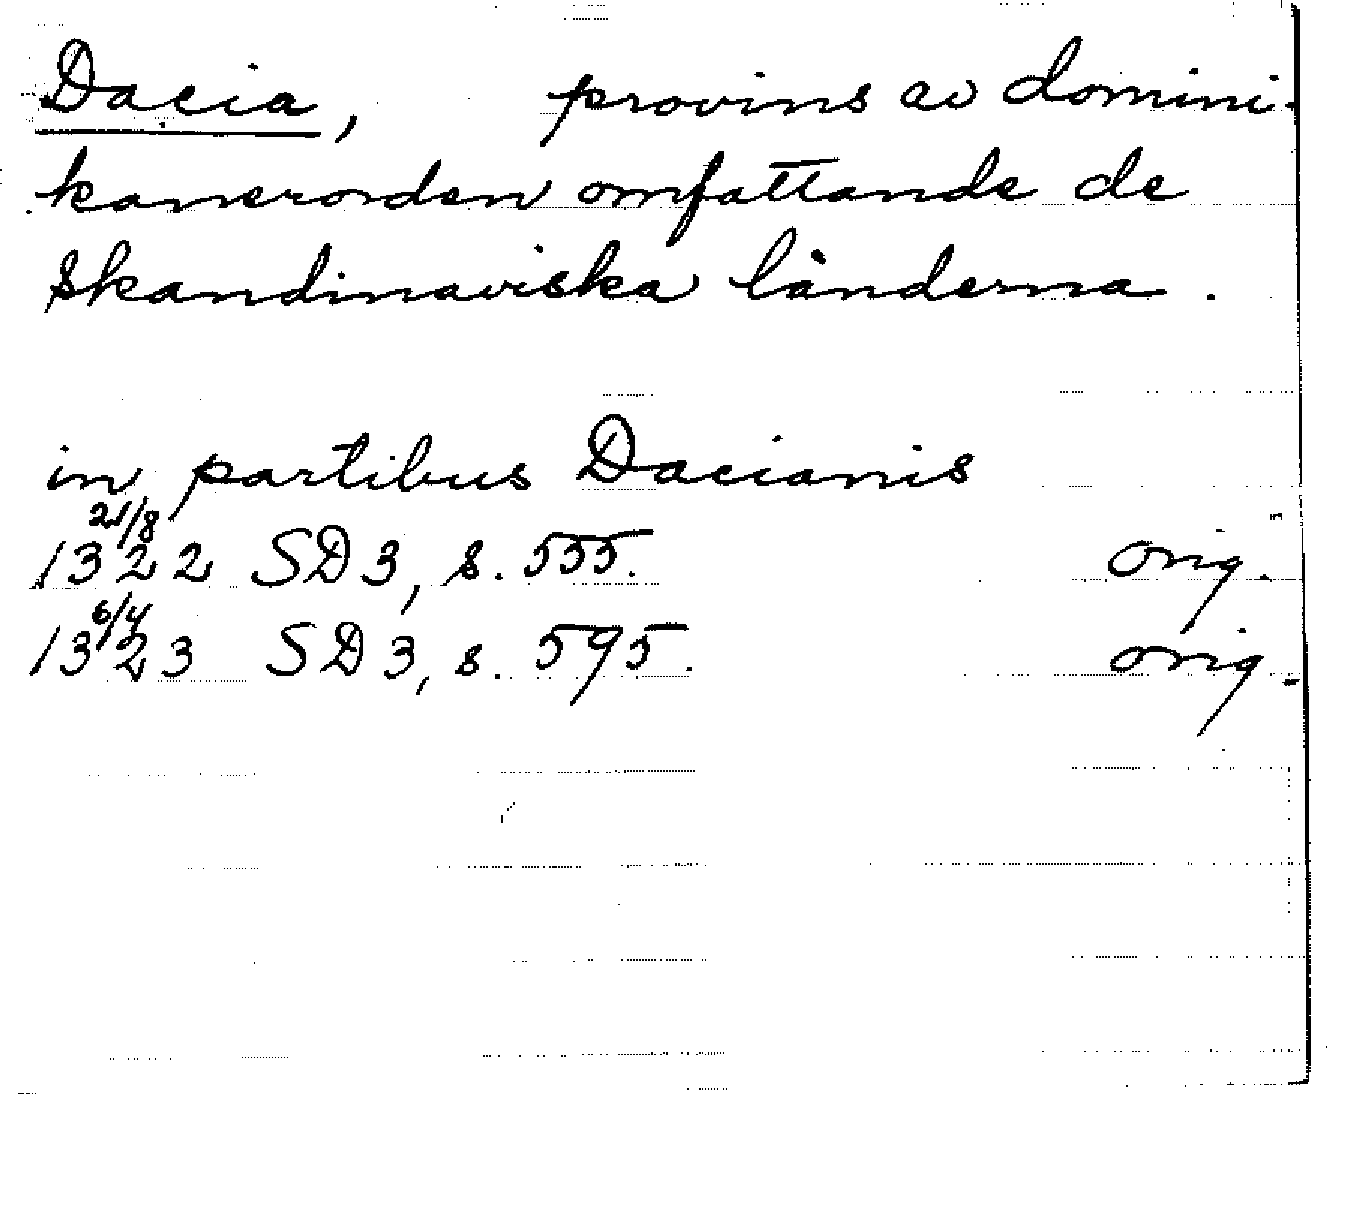 Dacia, provins av domini-
kanerorden omfattande de
skandinaviska länderna.
in partibus Dacianis
21/8
1322 SD 3, s. 555. orig.
6/4
1323 SD 3, s. 595. orig.